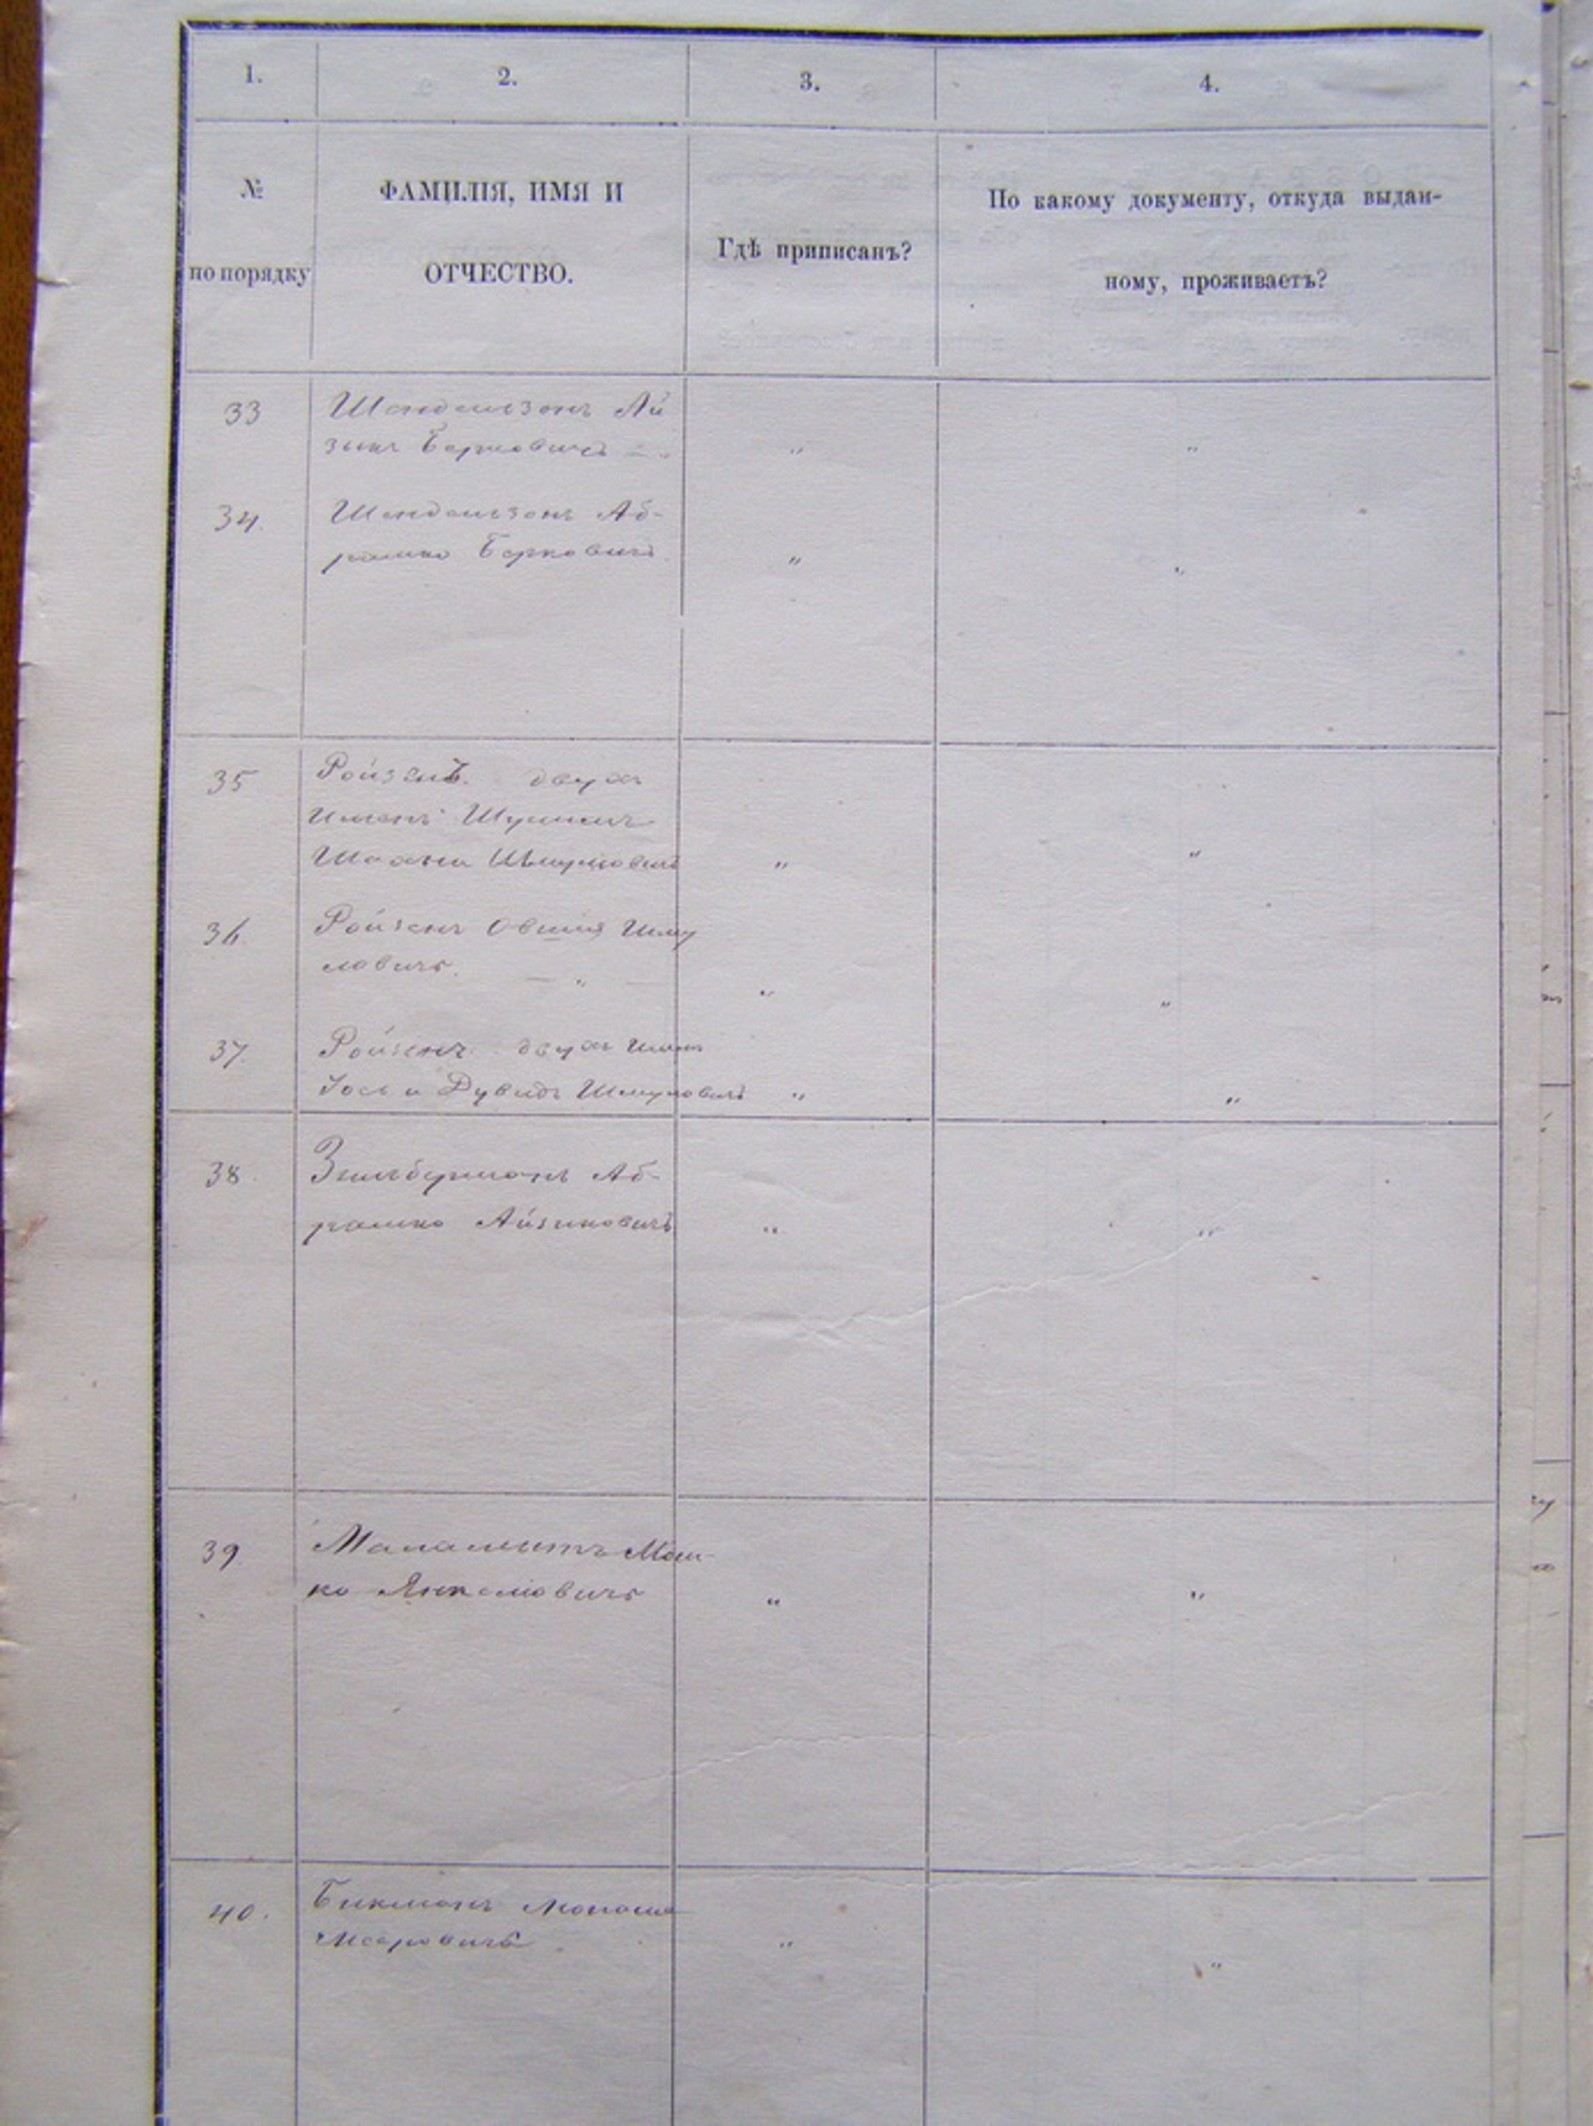 1. 2. 3. 4.
№
по порядку
ФАМИЛІЯ, ИМЯ И
ОТЧЕСТВО.
Гдѣ приписанъ?
По какому документу, откуда выдан-
ному, проживаетъ?
33 Шендельзонъ Ай
зикъ Берковичъ — „ „ „
34. Шендельзонъ Аб-
рамко Берковичъ „ „
35 Ройзенъ. двухъ
именъ
Шмулевичъ „ „
36. Ройзенъ Овшія Шму
левичъ. — „ — „ „
37. Ройзенъ двухъ именъ
Іось и Дувидъ Шмулевичъ „ „
38. Зильберманъ Аб-
рамко Айзиковичъ „ „
39. Маламутъ Мош-
ко Янкелевичъ „ „
40. Бикманъ Монаше
Мееровичъ „ „